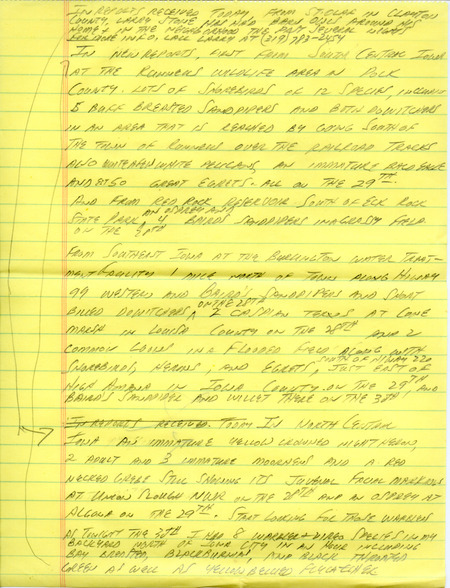 IN REPORTS RECEIVED TODAY FROM ST. OLAF IN CLAYTON
COUNTY, LARRY STONE HAS HAD BARN OWLS AROUND HIS
HOME + IN THE NEIGHBORHOOD THE PAST SEVERAL NIGHTS
FOR MORE INFO. CALL LARRY AT (319)
IN NEW REPORTS, FIRST FROM SOUTH CENTRAL IOWA
AT THE RUNNELLS WILDLIFE AREA IN POLK
COUNTY. LOTS OF SHOREBIRDS OF 12 SPECIES INCLUDING
5 BUFF BREASTED SANDPIPERS AND BOTH DOWITCHERS
IN AN AREA THAT IS REACHED BY GOING SOUTH OF
THE TOWN OF RUNNELLS OVER THE RAILROAD TRACKS
ALSO WHITE PELICANS, AN IMMATURE BALD EAGLE
AND 80 GREAT EGRETS. ALL ON THE 29TH.
AND FROM RED ROCK RESERVOIR SOUTH OF ELK ROCK
STATE PARK, AN OSPREY AND 4 BAIRDS SANDPIPERS IN A GRASSY FIELD
ON THE 30TH
FROM SOUTHERN IOWA AT THE BURLINGTON WATER TREAT-
MENT FACILITY 1 MILE NORTH OF TOWN ALONG HIGHWAY
99 WESTERN AND BAIRD'S SANDPIPERS AND SHORT
BILLED DOWITCHERS, ON THE 28TH 2 CASPIAN TERNS AT CONE
MARSH IN LOUISA COUNTY ON THE 28TH AND 2
COMMON LOONS IN A FLOODED FIELD ALONG WITH
SHOREBIRDS, HERONS, AND EGRETS, SOUTH OF HIWAY 220 JUST EAST OF
HIGH AMANA IN IOWA COUNTY ON THE 29TH, AND
BAIRD'S SANDPIPER AND WILLET THERE ON THE 30TH.
IN REPORTS RECEIVED TODAY IN NORTH CENTRAL
IOWA AN IMMATURE YELLOW CROWNED NIGHT HERON,
2 ADULT AND 3 IMMATURE MOORHENS AND A RED
NECKED GREBE STILL SHOWING ITS JUVENAL FACIAL MARKINGS
AT UNION SLOUGH NWR ON THE 28TH AND AN OSPREY AT
ALGONA ON THE 29TH. START LOOKING FOR THOSE WARBLERS
AS TONIGHT THE 30TH I HAD 8 WARBLER SPECIES IN MY
BACKYARD NORTH OF IOWA CITY IN AN HOUR INCLUDING
BAY BREASTED, BLACKBURNIAN, AND BLACK THROATED
GREEN AS WELL AS YELLOW BELLIED FLYCATCHER